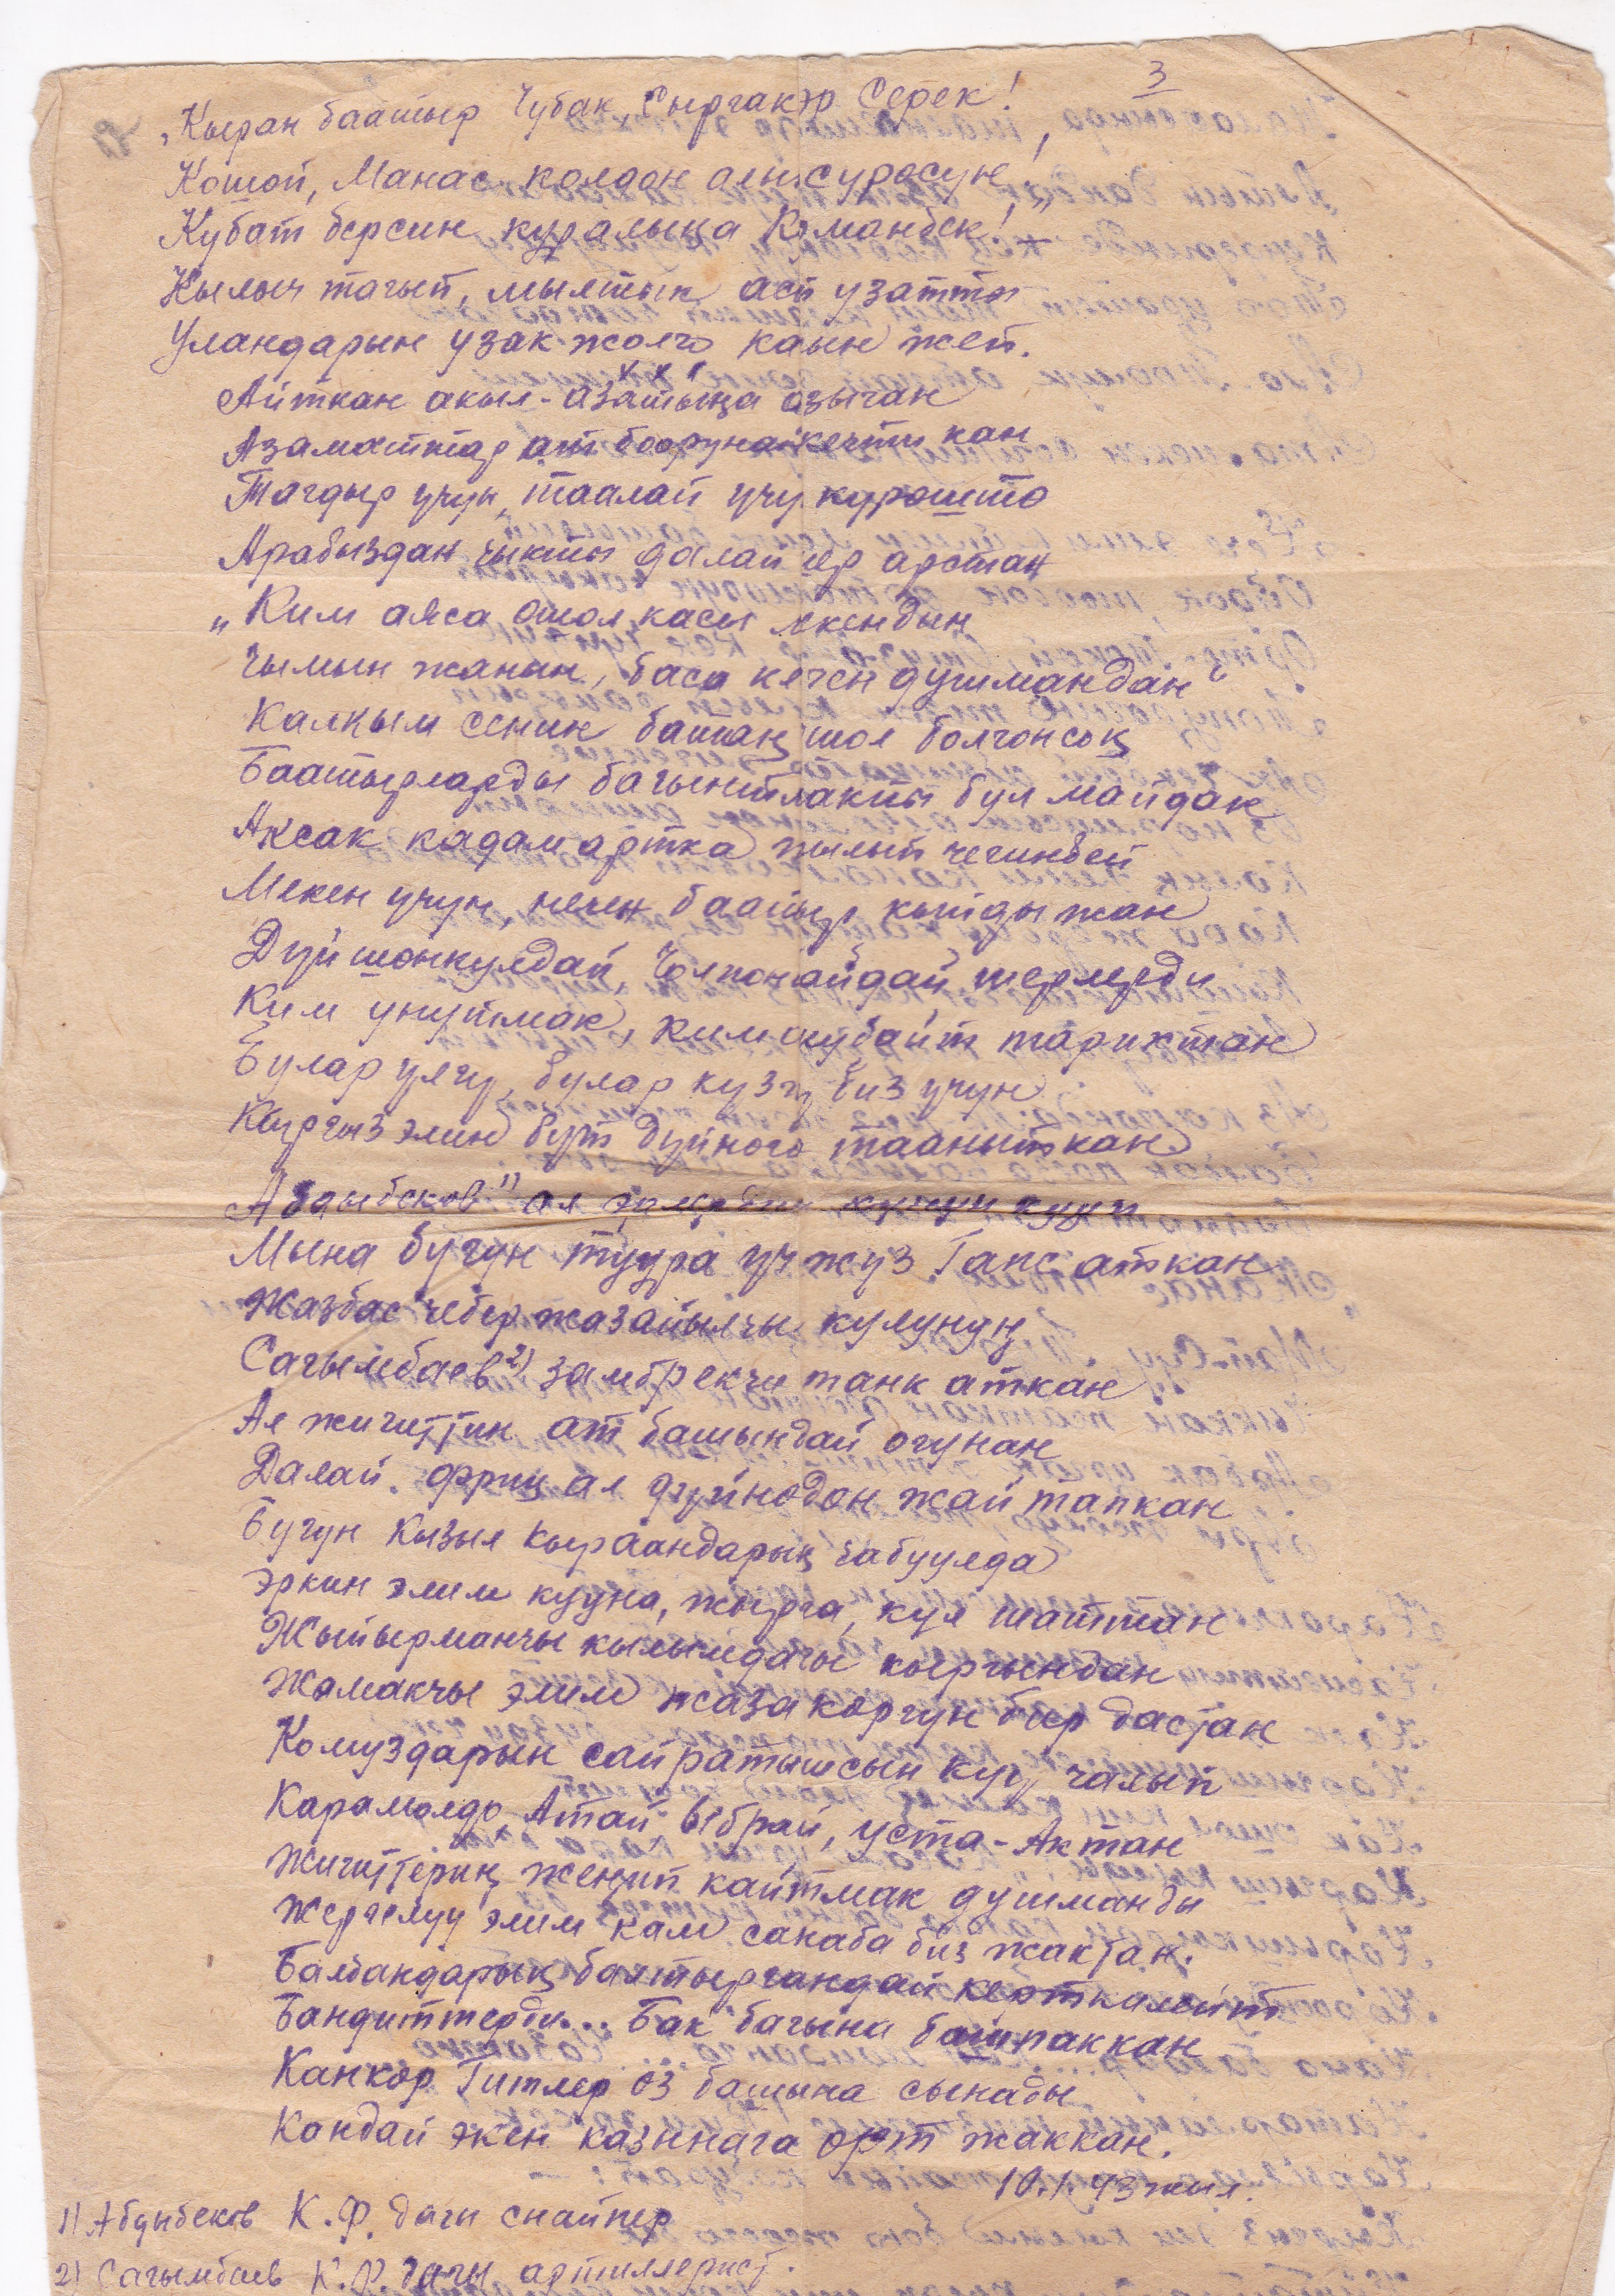 3
„Кыран баатыр Чубак, Сыргакэр Серек!
Кошой, Манас колдон алы суросун!
Кубат берсин куралыңа Команбек!"
Кылыч тагып, мылтык асп узатты
Уландарын узак жолго каын жеп.
х х х
Айткан акыл-азатыңа азыган
Азаматтар ат бооруна кечти кан
Тагдыр үчүн, таалай үчү күрөштө
Арабыздан чыкты далай эр арстан
„Ким аяса ошол касы мекендын
Чымын жанын, баса кечен душмандан"
Калкым сенин батаң шол болгонсоң
Баатырларды багынталакты бул майдан
Аксак кадам артка жылып чегинбей
Мекен үчүн, нечен баатыр кыйды жан
Дүйшөнкулдай, Чолпонайдай шермерди
Ким унутмак, ким ошубайт тарыхтан
Булар үлгү, булар күзгү биз үчүн
Кыргыз элин бүт дүйнөгө тааныткан
Абдыбеков¹⁾ ал эрмерби күчүн
Мына бүгүн туура үч жүз Ганс аткан
Жазбас чебер жазайылчы кулунуң
Сагымбаев²⁾ замбрекчи танк аткан
Ал жигиттин ат башындай огунан
Далай фриц ал дүйнөдөн жай тапкан
Бүгүн Кызыл кыраандарың чабуулда
Эркин элим кууна, жырга, күл шаттан
Жыйырманчы кылымдагы кыргындан
Жомакчы элим жаза көргүн бир дастан
Комуздарын сайратышсын күү чалып
Карамолдо, Атай Ыбрай, уста-Актан
Жигиттериң жеңип кайтмак душманды
Жергелүү элим кам санаба биз жактан.
Балбандарың балтыргандай керткилейт
Бандиттерди... Бак багына башпаккан
Канкор Гитлер өз башына сынады
Кандай экен казынага өрт жаккан.
10.1.43 жыл.
1) Абдыбеков К.Ф. дагы снайпер
2) Сагымбаев К.Ф. дагы артиллерист.